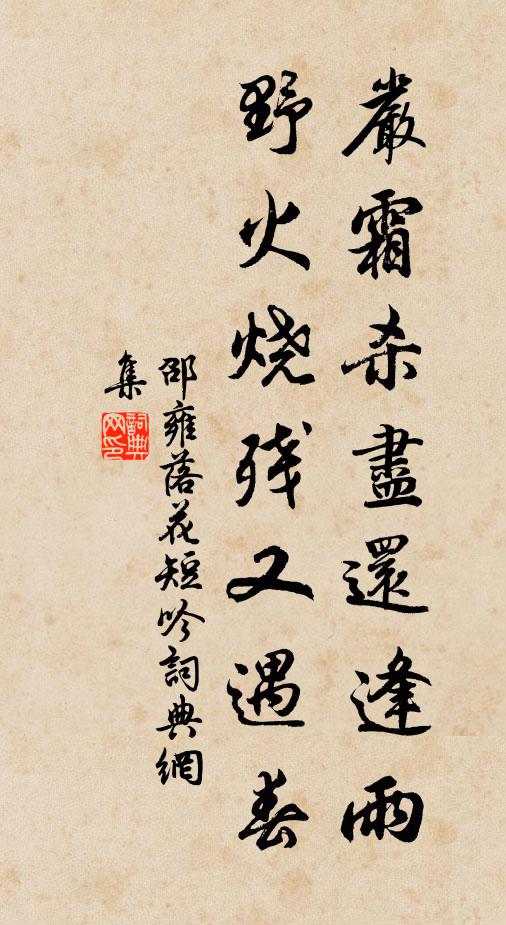 嚴霜杀盡還逢雨
野火烧残又遇春
邵雍落花短吟詞典網
集
詞典
网印